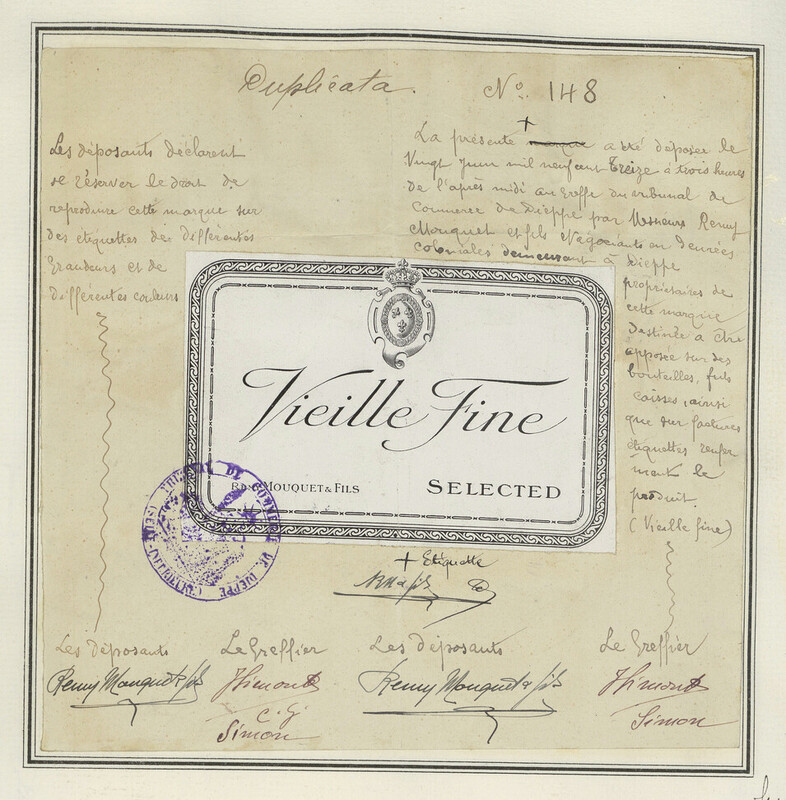 Duplicata.
No. 148
Les déposants déclarent
se réserver le droit de
reproduire cette marque sur
des étiquettes de différentes
grandeurs et de
différentes couleurs
+
La présente marque a été déposer le
Vingt Juin mil neufcent Treize à trois heures
de l'après midi au Greffe du tribunal de
Commerce de Dieppe par Messieurs Remy
Mouquet et fils Négociants en Denrées
Coloniales demeurant à Dieppe
propriétaires de
cette marque
Destinée a être
apposée sur des
bouteilles, futs
caisses, ainsi
que sur factures
étiquettes renfer
mant le
produit.
(Vieille fine)
Vieille Fine
MOUQUET & FILS
SELECTED
TRIBUNAL DE COMMERCE DE DIEPPE
+ Etiquette
RM & fils
Les Déposants
Le Greffier
Les Déposants
Le Greffier
Remy Mouquet & fils
Remy Mouquet & fils
C. G.
Simon
Simon